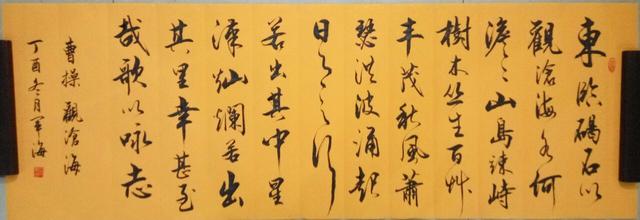 東臨碣石以
觀滄海水何
澹々山島竦峙
樹木丛生百艸
丰茂秋風蕭
瑟洪波涌起
日月之行
若出其中星
漢灿爛若出
其里幸甚至
哉歌以咏志
曹操觀滄海
丁酉冬月軍海